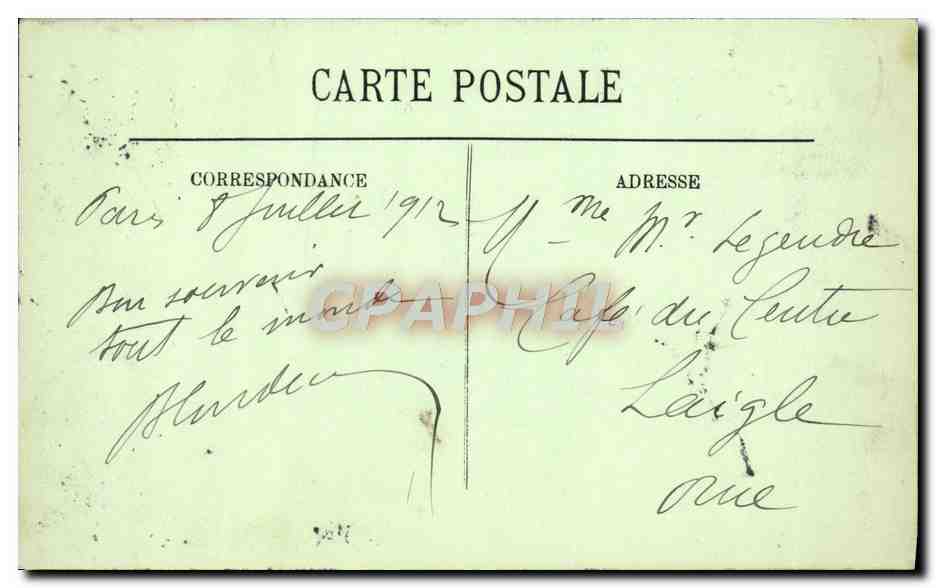 CARTE POSTALE
CORRESPONDANCE
Paris 8 Juillet 1912
Bon souvenir
tout le monde
ADRESSE
Mme Mr Legendre
Café du Centre
Laigle
Orne
CPAPHIL